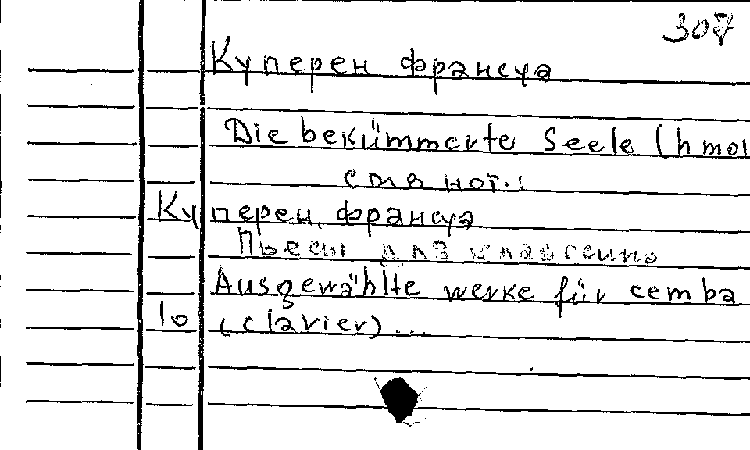 307
Куперен франсуа
Die bekümmerte Seele (h mol
см а нот.:
Куперен, франсуа
Пьесы для клавесина
Ausgewählte werke für cemba
lo (clavier)...